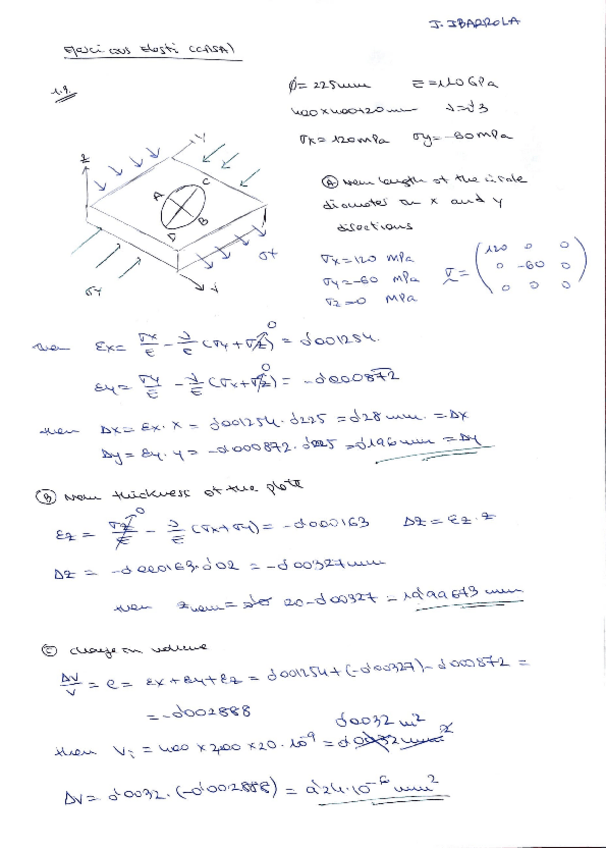 J. IBARROLA
Ejercicios Elasti (CASA)
1.9
Ø = 225mm E = 110 GPa
400x400x20mm ν = 0'3
σx = 120MPa σy = -60MPa
z
y
A C
B
D
σx
σy
x
(A) New length of the circle
diametes on x and y
directions
σx = 120 MPa
σy = -60 MPa
σz = 0 MPa
σ = ( 120 0 0
0 -60 0
0 0 0 )
then Ex = σx/E - ν/E (σy + σz) = 0'001254.
0
Ey = σy/E - ν/E (σx + σz) = -0'000872
0
then Δx = Ex · x = 0'001254 · 0'225 = 0'28 mm. = Δx
Δy = Ey · y = -0'000872 · 0'225 = 0'196 mm = Δy
(B) New thickness of the plate
Ez = σz/E - ν/E (σx + σy) = -0'000163 Δz = Ez · z
0
Δz = -0'000163 · 0'02 = -0'00327 mm
then z new = 20 - 0'00327 = 19'99673 mm
(C) change on volume
ΔV/V = e = Ex + Ey + Ez = 0'001254 + (-0'00327) - 0'000872 =
= -0'002888
0'0032 m²
then Vi = 400 x 400 x 20 · 10⁻⁹ = 0'0032 mm²
ΔV = 0'0032 · (-0'002888) = 9'24 · 10⁻⁶ mm²